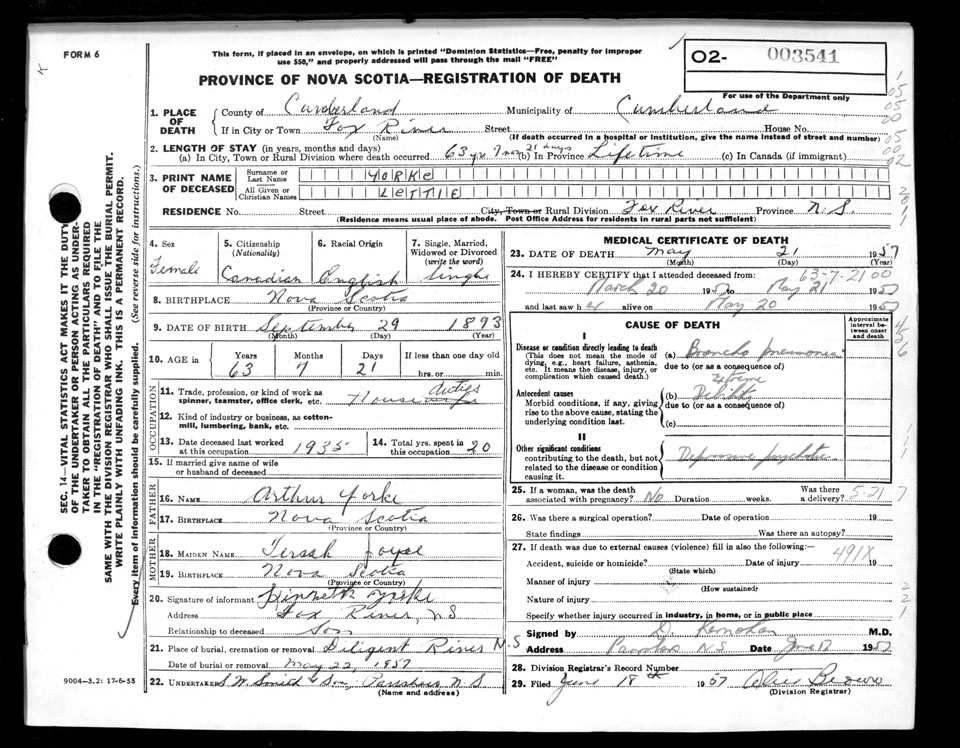 FORM 6
This form, if placed in an envelope, on which is printed "Dominion Statistics—Free, penalty for improper
use $50," and properly addressed will pass through the mail "FREE"
PROVINCE OF NOVA SCOTIA—REGISTRATION OF DEATH
O2- 003541
For use of the Department only
1. PLACE OF DEATH
County of Cumberland Municipality of Cumberland
If in City or Town Fox River Street House No.
(Name) (If death occurred in a hospital or institution, give the name instead of street and number)
2. LENGTH OF STAY (in years, months and days)
(a) In City, Town or Rural Division where death occurred 63 yr 7 mon 21 days (b) In Province Lifetime (c) In Canada (if immigrant)
3. PRINT NAME OF DECEASED
Surname or Last Name YORKE
All Given or Christian Names LETTIE
RESIDENCE No. Street City, Town or Rural Division Fox River Province N.S.
(Residence means usual place of abode. Post Office Address for residents in rural parts not sufficient)
4. Sex Female
5. Citizenship (Nationality) Canadian
6. Racial Origin English
7. Single, Married, Widowed or Divorced (write the word) Single
8. BIRTHPLACE Nova Scotia
(Province or Country)
9. DATE OF BIRTH September 29 1893
(Month) (Day) (Year)
10. AGE in Years 63 Months 7 Days 21 If less than one day old hrs. or min.
OCCUPATION
11. Trade, profession, or kind of work as spinner, teamster, office clerk, etc. House duties
12. Kind of industry or business, as cotton-mill, lumbering, bank, etc.
13. Date deceased last worked at this occupation 1935
14. Total yrs. spent in this occupation 20
15. If married give name of wife or husband of deceased
FATHER
16. NAME Arthur Yorke
17. BIRTHPLACE Nova Scotia
(Province or Country)
MOTHER
18. MAIDEN NAME Tersah Joyce
19. BIRTHPLACE Nova Scotia
(Province or Country)
20. Signature of informant Kinneth Yorke
Address Fox River, N S
Relationship to deceased Son
21. Place of burial, cremation or removal Diligent River N.S
Date of burial or removal May 22, 1957
22. UNDERTAKER S.W. Smith & Son, Parrsboro N.S
(Name and address)
9004—3.2: 17-6-55
MEDICAL CERTIFICATE OF DEATH
23. DATE OF DEATH May 21 1957
(Month) (Day) (Year)
63-7-21 00
24. I HEREBY CERTIFY that I attended deceased from:
March 20 1957 to May 21 1957
and last saw her alive on May 20 1957
CAUSE OF DEATH
Approximate interval between onset and death
I
Disease or condition directly leading to death
(This does not mean the mode of dying, e.g., heart failure, asthenia, etc. It means the disease, injury, or complication which caused death.)
(a) Broncho pneumonia
due to (or as a consequence of)
Antecedent causes
Morbid conditions, if any, giving rise to the above cause, stating the underlying condition last.
(b) Extreme Debility
due to (or as a consequence of)
(c)
II
Other significant conditions
contributing to the death, but not related to the disease or condition causing it.
Depressive psychotic
25. If a woman, was the death associated with pregnancy? No Duration weeks. Was there a delivery? 5-21 7
26. Was there a surgical operation? Date of operation 19
State findings Was there an autopsy?
27. If death was due to external causes (violence) fill in also the following:—
491X
Accident, suicide or homicide? Date of injury 19
(State which)
Manner of injury
(How sustained)
Nature of injury
Specify whether injury occurred in industry, in home, or in public place
Signed by D. Kernohan M.D.
Address Parrsboro N.S. Date June 12 1957
28. Division Registrar's Record Number
29. Filed June 18th 1957
(Division Registrar)
SEC. 14—VITAL STATISTICS ACT MAKES IT THE DUTY
OF THE UNDERTAKER OR PERSON ACTING AS UNDER-
TAKER TO OBTAIN ALL THE PARTICULARS REQUIRED
IN THE "REGISTRATION OF DEATH" AND TO FILE THE
SAME WITH THE DIVISION REGISTRAR WHO SHALL ISSUE THE BURIAL PERMIT.
WRITE PLAINLY WITH UNFADING INK. THIS IS A PERMANENT RECORD.
Every item of information should be carefully supplied. (See reverse side for instructions.)